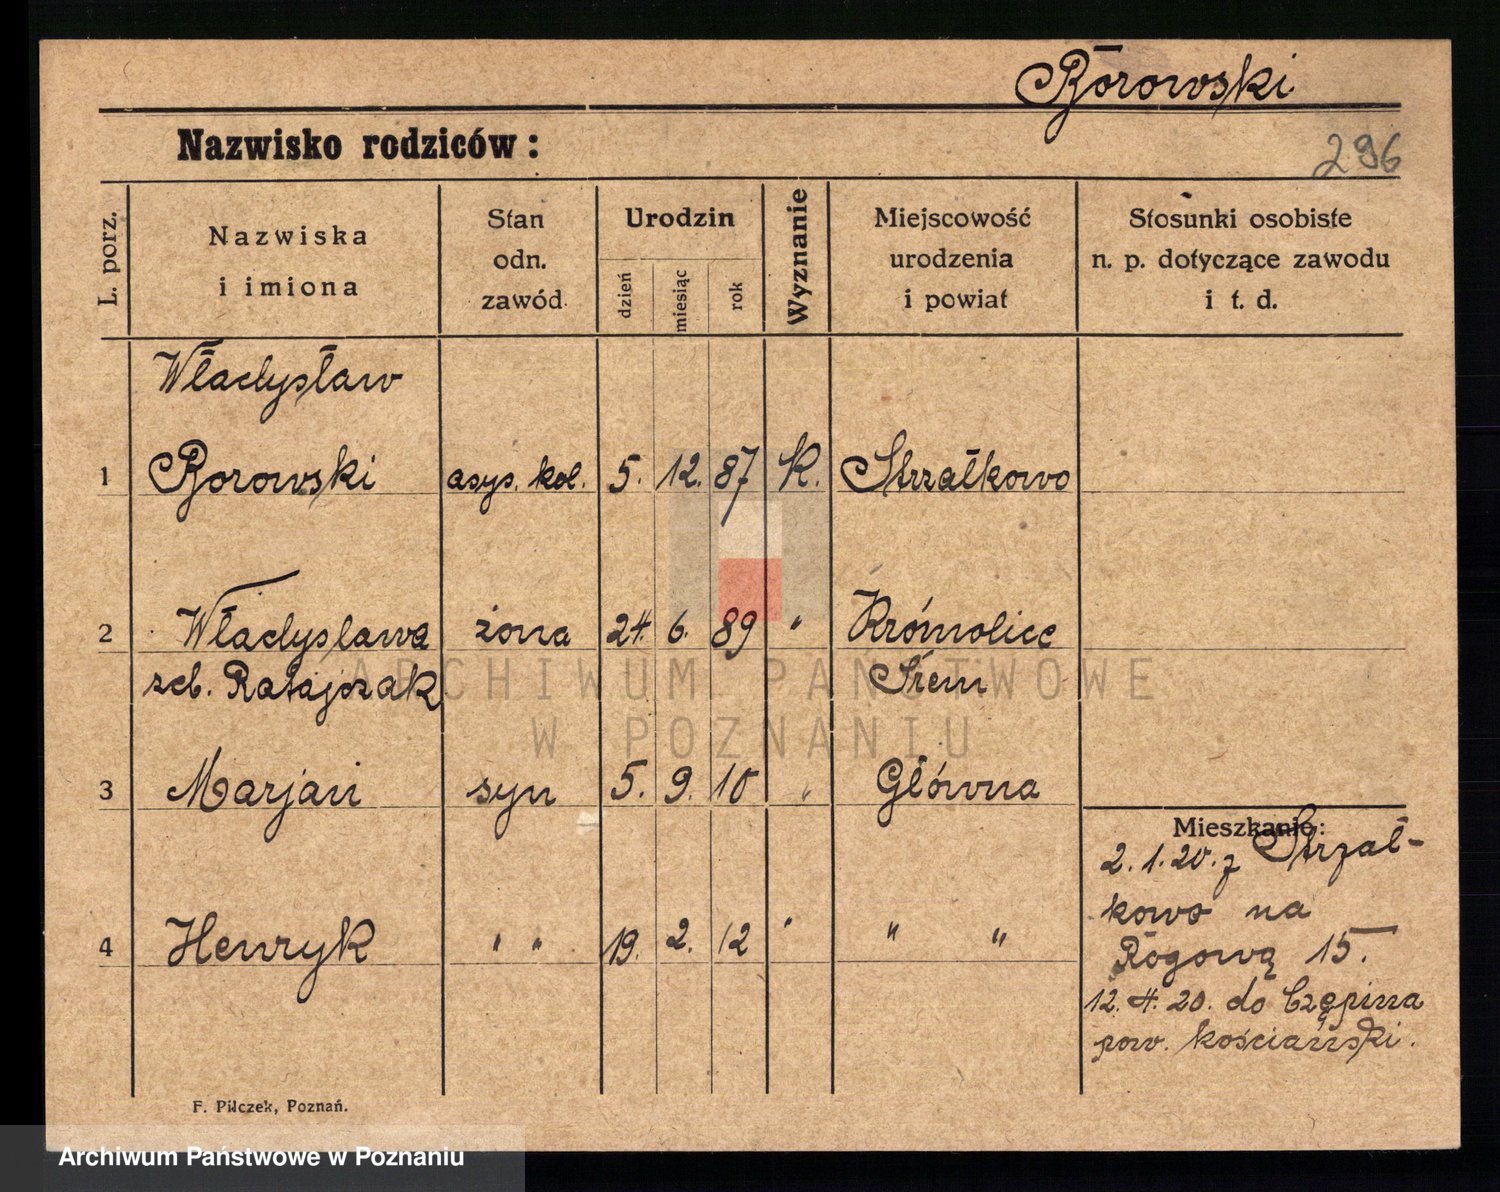 Borowski
Nazwisko rodziców:
296
L. porz.
Nazwiska
i imiona
Stan
odn.
zawód
Urodzin
dzień
miesiąc
rok
Wyznanie
Miejscowość
urodzenia
i powiat
Stosunki osobiste
n. p. dotyczące zawodu
i t. d.
Władysław
1 Borowski asys. kol. 5. 12. 87 K. Strzałkowo
2 Władysława żona 24. 6. 89 " Krómolice
zcb. Ratajczak Śrem
3 Marjan syn 5. 9. 10 " Główna
4 Henryk " " 19. 2. 12 " " "
Mieszkanie:
2.1.20. z Strzał-
kowo na
Rogową 15.
12.4.20. do Czępina
pow. kościański.
F. Pilczek, Poznań.
ARCHIWUM PAŃSTWOWE
W POZNANIU
Archiwum Państwowe w Poznaniu